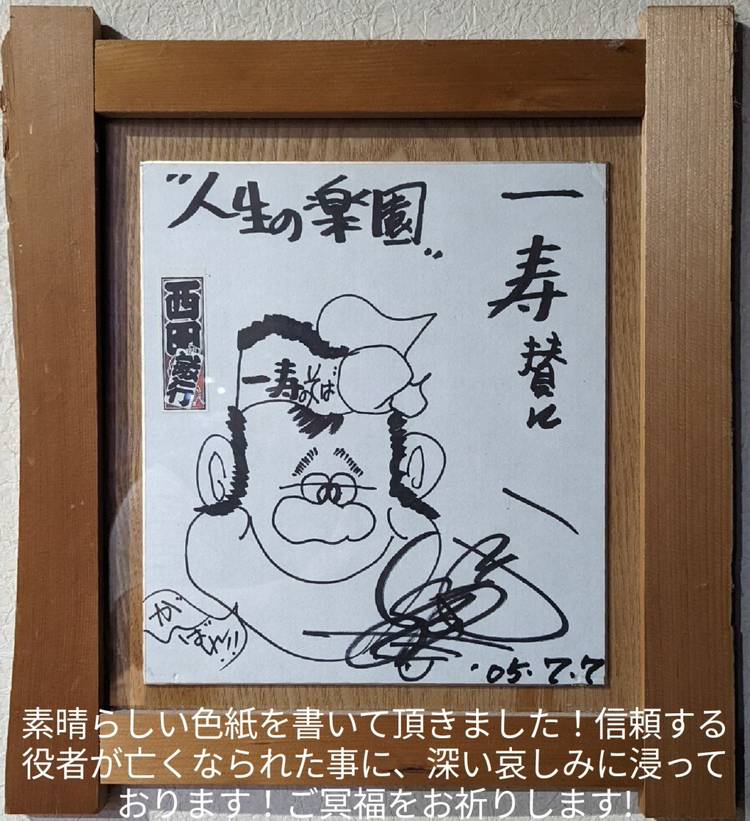 一寿賛に
"人生の楽園"
西田敏行
一寿のそば
がばれ!!
'05.7.7
素晴らしい色紙を書いて頂きました！信頼する
役者が亡くなられた事に、深い哀しみに浸って
おります！ご冥福をお祈りします!